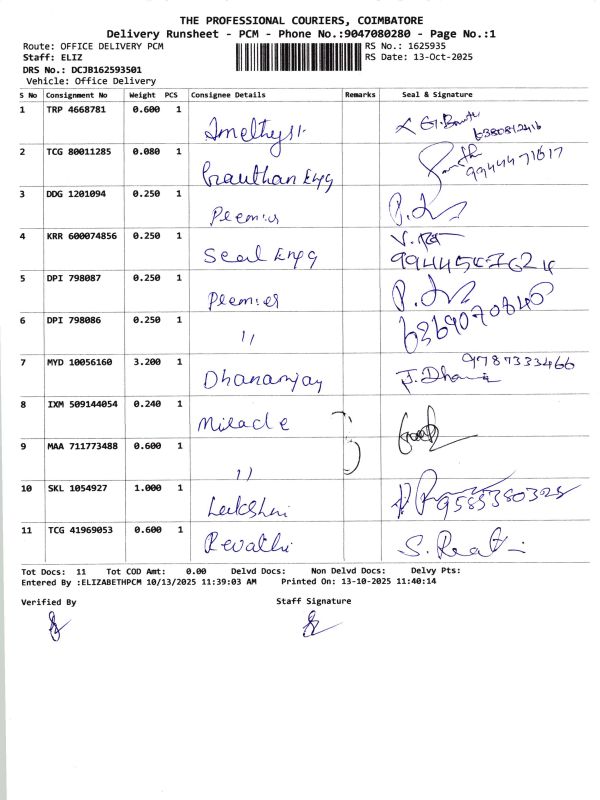 THE PROFESSIONAL COURIERS, COIMBATORE
Delivery Runsheet - PCM - Phone No.:9047080280 - Page No.:1
Route: OFFICE DELIVERY PCM
RS No.: 1625935
Staff: ELIZ
RS Date: 13-Oct-2025
DRS No.: DCJB162593501
Vehicle: Office Delivery
S No Consignment No Weight PCS Consignee Details Remarks Seal & Signature
1 TRP 4668781 0.600 1 Amethyst
6380812416
2 TCG 80011285 0.080 1 Engg
9944471617
3 DDG 1201094 0.250 1 Premier
4 KRR 600074856 0.250 1 Seal Engg
5 DPI 798087 0.250 1 Premier
6 DPI 798086 0.250 1 11
6369070840
7 MYD 10056160 3.200 1 Dhananjay 9787333466
J. Dhana
8 IXM 509144054 0.240 1 Miracle
9 MAA 711773488 0.600 1 11
10 SKL 1054927 1.000 1 9585380325
11 TCG 41969053 0.600 1 Revathi S.
Tot Docs: 11 Tot COD Amt: 0.00 Delvd Docs: Non Delvd Docs: Delvy Pts:
Entered By :ELIZABETHPCM 10/13/2025 11:39:03 AM Printed On: 13-10-2025 11:40:14
Verified By Staff Signature